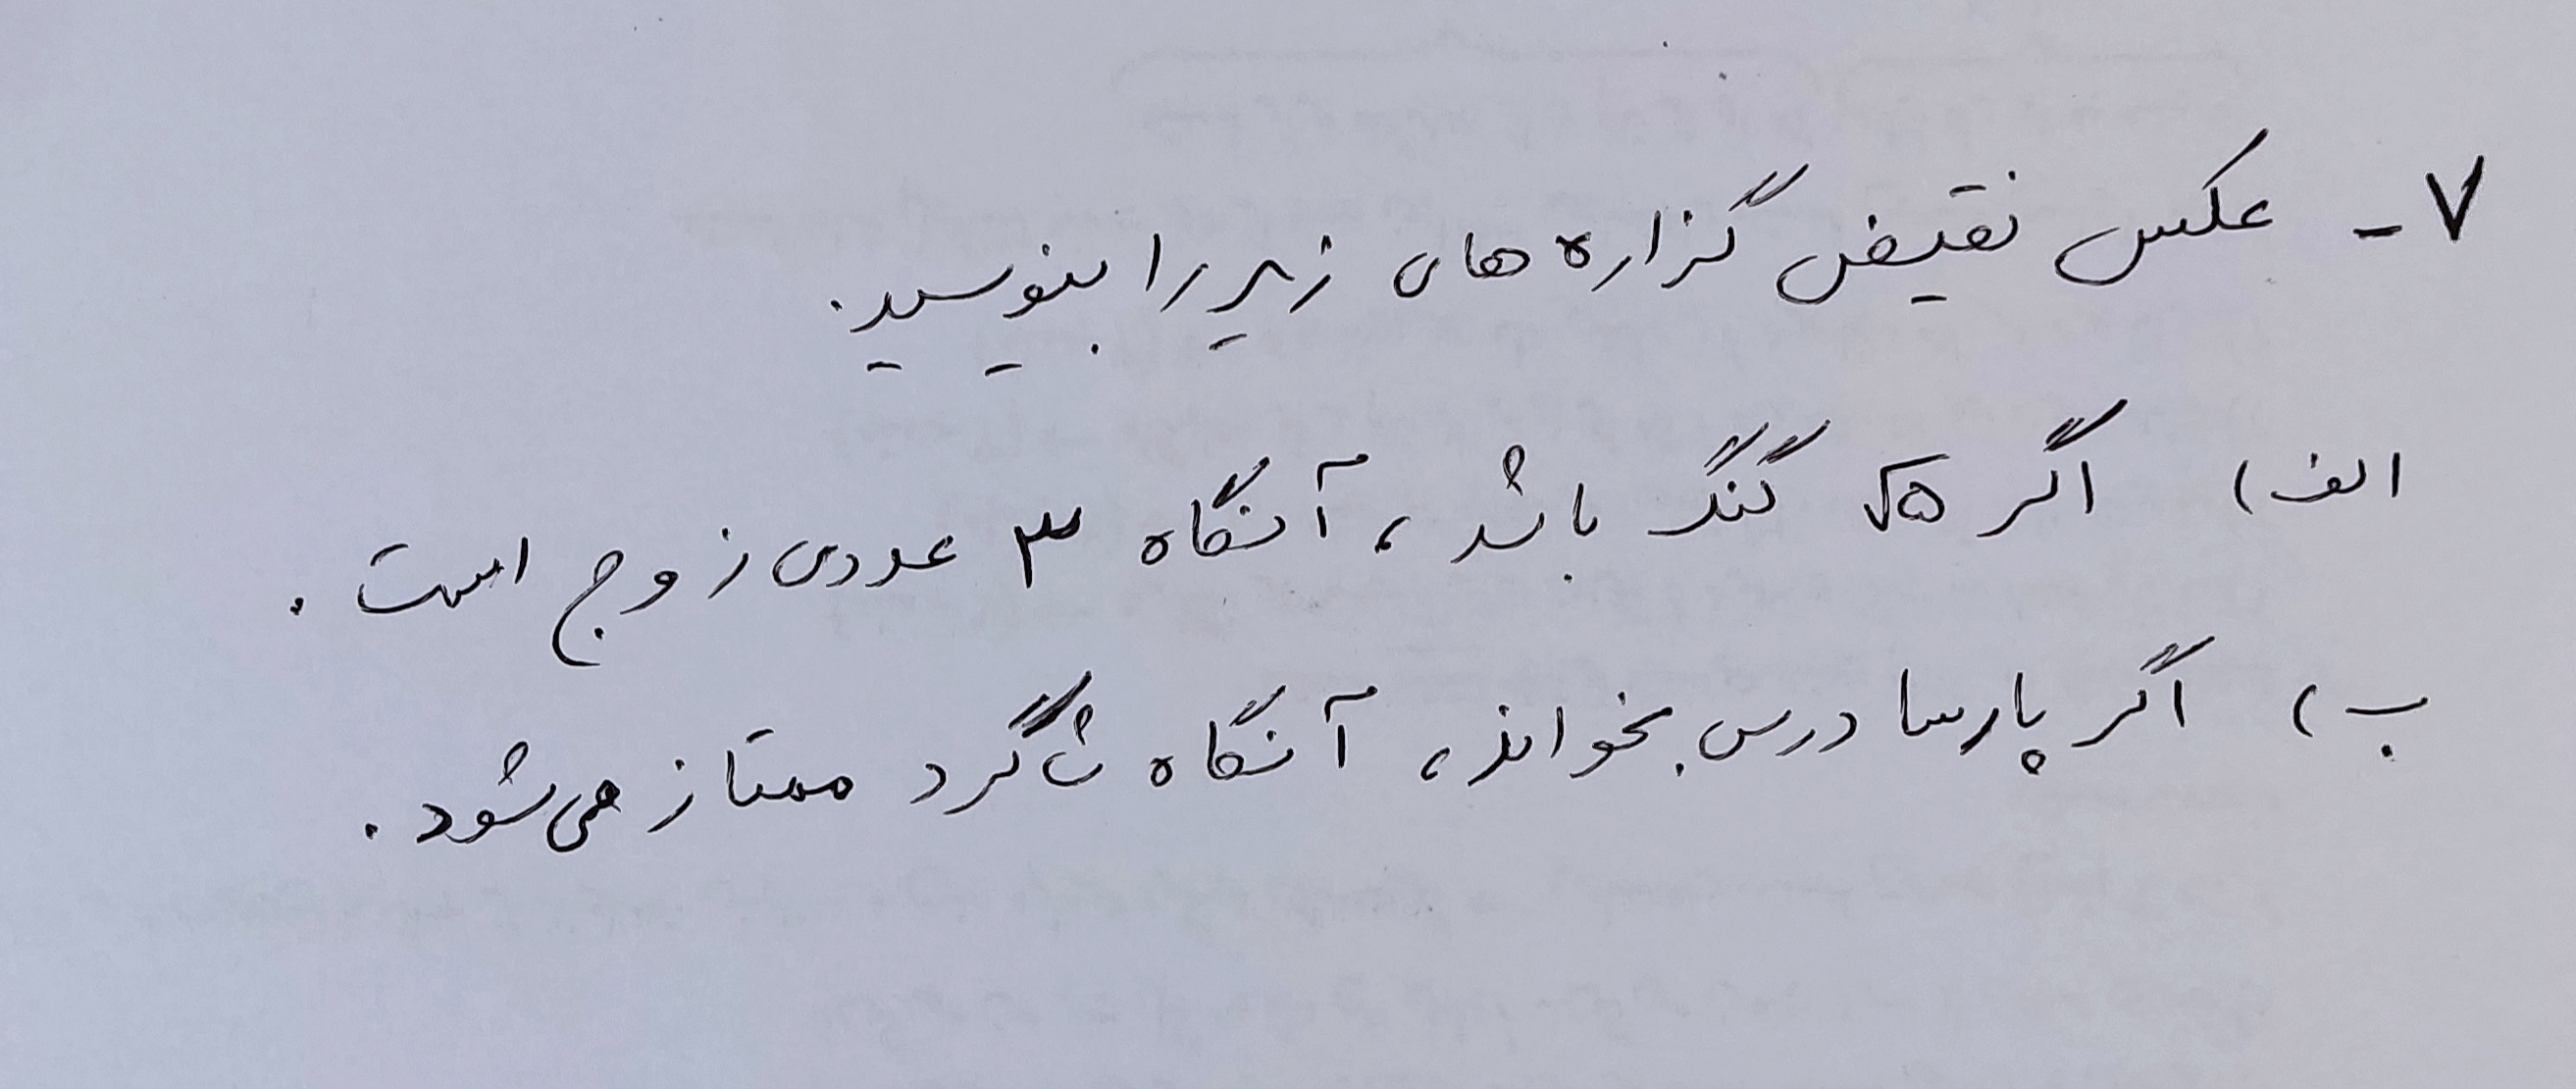 ۷- عکس نقیض گزاره های زیر را بنویسید.
الف) اگر √۵ گنگ باشد، آنگاه ۳ عددی زوج است.
ب) اگر پارسا درس بخواند، آنگاه شاگرد ممتاز می‌شود.